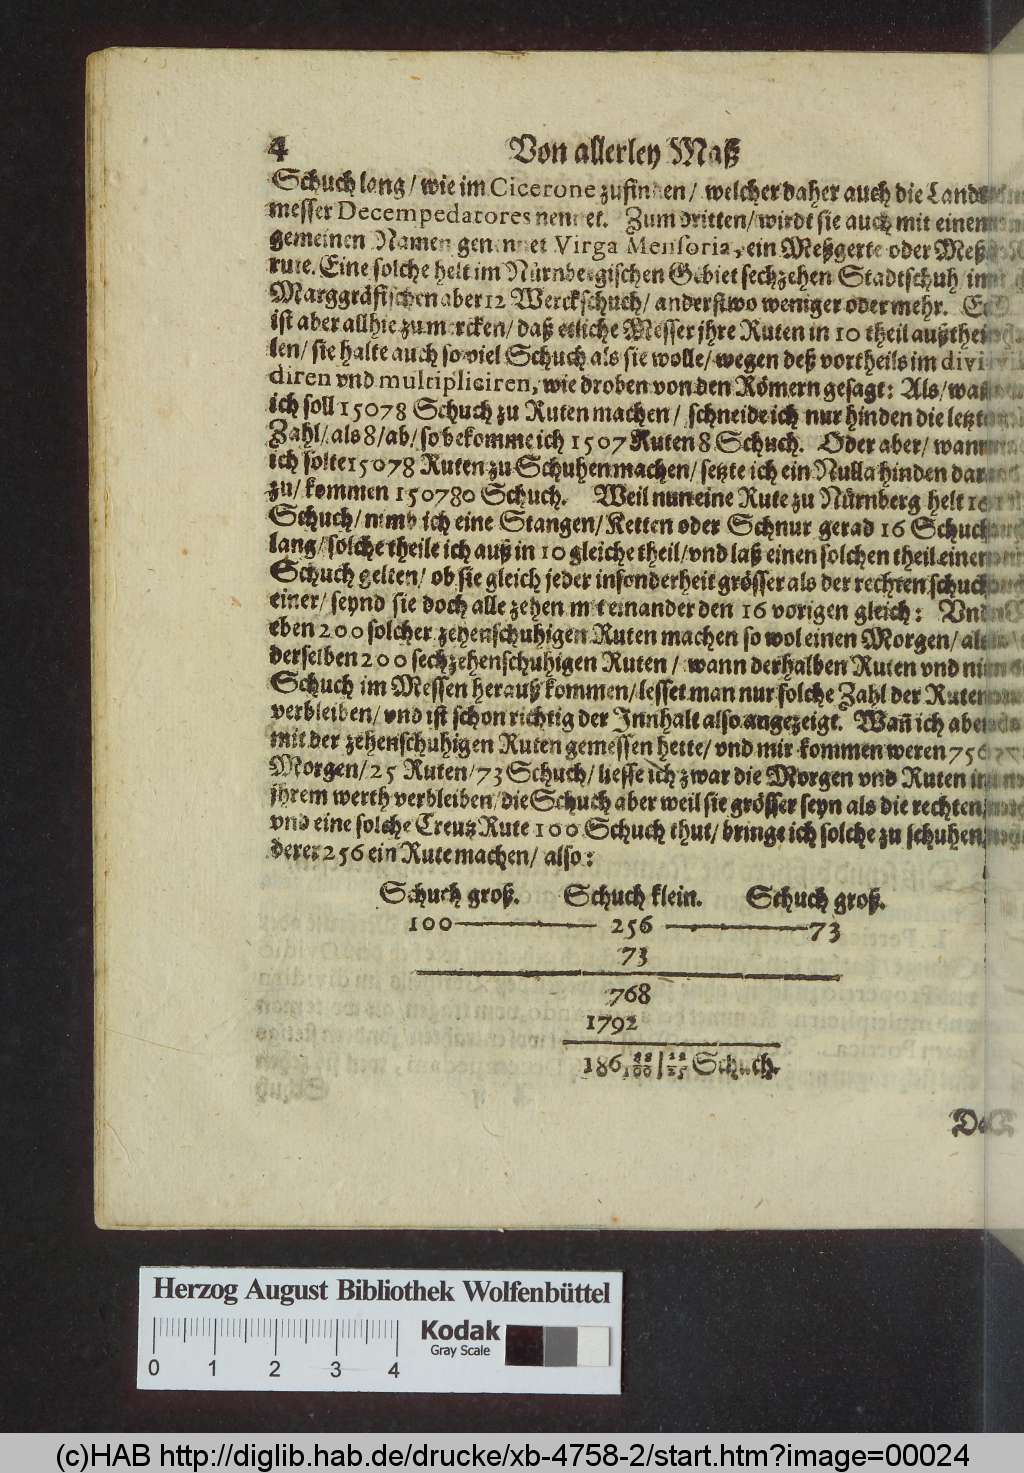 4 Von allerley Maß
Schuch lang / wie im Cicerone zufinden / welcher daher auch die Land-
messer Decempedatores nennet. Zum dritten / wirdt sie auch mit einem
gemeinen Namen genennet Virga Mensoria, ein Meßgerte oder Meß-
rute. Eine solche helt im Nürnbergischen Gebiet sechzehen Stadtschuh im
Marggräfischen aber 12 Werckschuch / anderstwo weniger oder mehr. Es
ist aber allhie zu mercken / daß etliche Messer jhre Ruten in 10 theil außthei-
len / sie halte auch so viel Schuch als sie wolle / wegen deß vortheils im divi-
diren vnd multipliciren, wie droben von den Römern gesagt: Als / wañ
ich soll 15078 Schuch zu Ruten machen / schneide ich nur hinden die letzte
Zahl / als 8 / ab / so bekomme ich 1507 Ruten 8 Schuch. Oder aber / wann
ich solte 15078 Ruten zu Schuhen machen / setzte ich ein Nulla hinden dar-
zu / kommen 150780 Schuch. Weil nun eine Rute zu Nürnberg helt 16
Schuch / nimb ich eine Stangen / Ketten oder Schnur gerad 16 Schuch
lang / solche theile ich auß in 10 gleiche theil / vnd laß einen solchen theil einen
Schuch gelten / ob sie gleich jeder insonderheit grösser als der rechten schuch
einer / seynd sie doch alle zehen mit einander den 16 vorigen gleich: Vnd
eben 200 solcher zehenschuhigen Ruten machen so wol einen Morgen / als
derselben 200 sechzehenschuhigen Ruten / wann derhalben Ruten vnd
Schuch im Messen herauß kommen / lesset man nur solche Zahl der Ruten
verbleiben / vnd ist schon richtig der Innhalt also angezeigt. Wañ ich aber
mit der zehenschuhigen Ruten gemessen hette / vnd mir kommen weren 756
Morgen / 25 Ruten / 73 Schuch / liesse ich zwar die Morgen vnd Ruten in
jhrem werth verbleiben / die Schuch aber weil sie grösser seyn als die rechten,
vnd eine solche Creutz Rute 100 Schuch thut / bringe ich solche zu schuhen,
derer 256 ein Rute machen / also:
Schuch groß. Schuch klein. Schuch groß.
100 —— 256 —— 73
73
768
1792
186 88/100 | 22/25 Schuch.
Herzog August Bibliothek Wolfenbüttel
Kodak
Gray Scale
0 1 2 3 4
(c)HAB http://diglib.hab.de/drucke/xb-4758-2/start.htm?image=00024